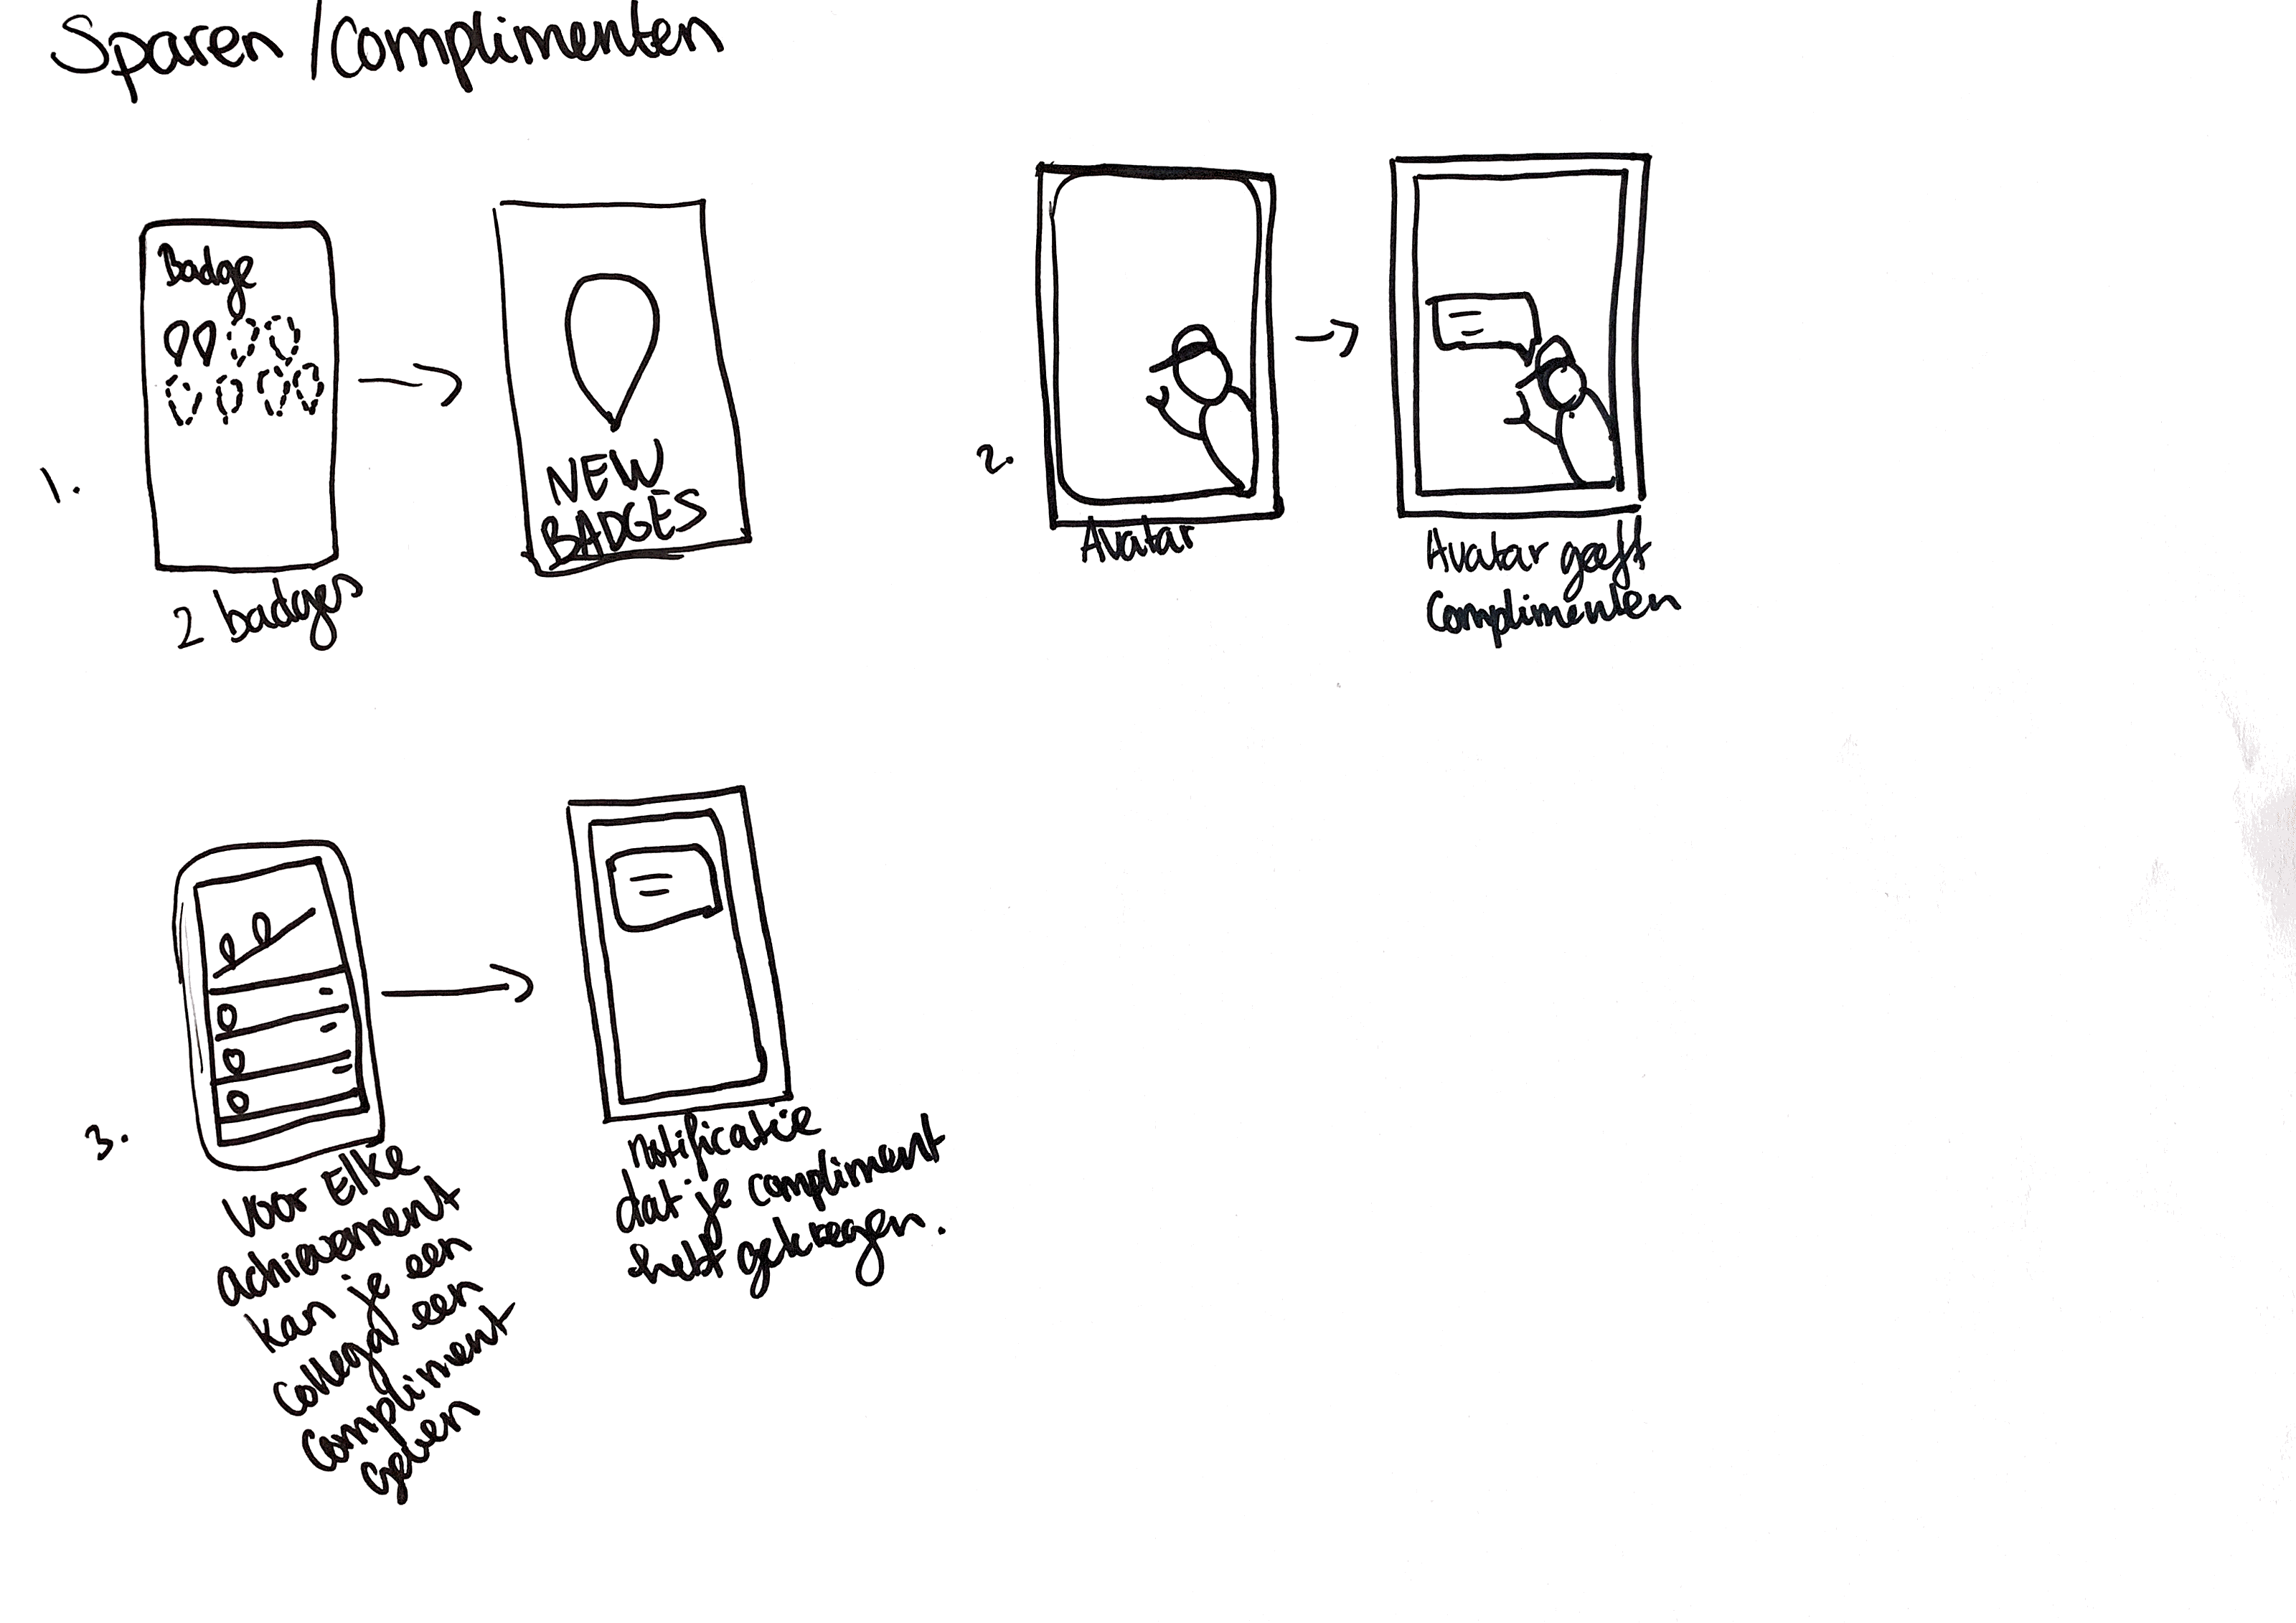 Sparen / Complimenten
1.
Badge
2 badges
NEW
BADGES
2.
Avatar
Avatar geeft
Complimenten
3.
Voor Elke
achievement
kan je een
collega een
compliment
geven
notificatie
dat je compliment
hebt gekregen.